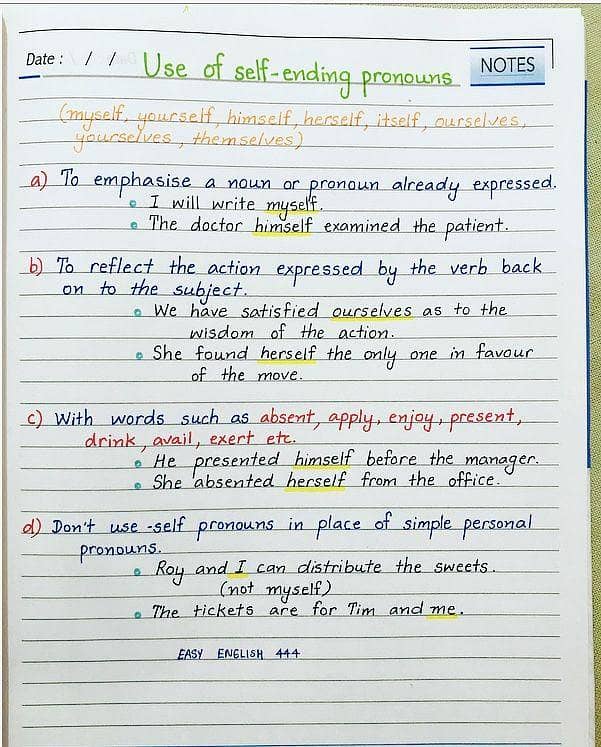 Date : / / Use of self-ending pronouns NOTES
(myself, yourself, himself, herself, itself, ourselves,
yourselves, themselves)
a) To emphasise a noun or pronoun already expressed.
• I will write myself.
• The doctor himself examined the patient.
b) To reflect the action expressed by the verb back
on to the subject.
• We have satisfied ourselves as to the
wisdom of the action.
• She found herself the only one in favour
of the move.
c) With words such as absent, apply, enjoy, present,
drink, avail, exert etc.
• He presented himself before the manager.
• She absented herself from the office.
d) Don't use -self pronouns in place of simple personal
pronouns.
• Roy and I can distribute the sweets.
(not myself)
• The tickets are for Tim and me.
EASY ENGLISH 444